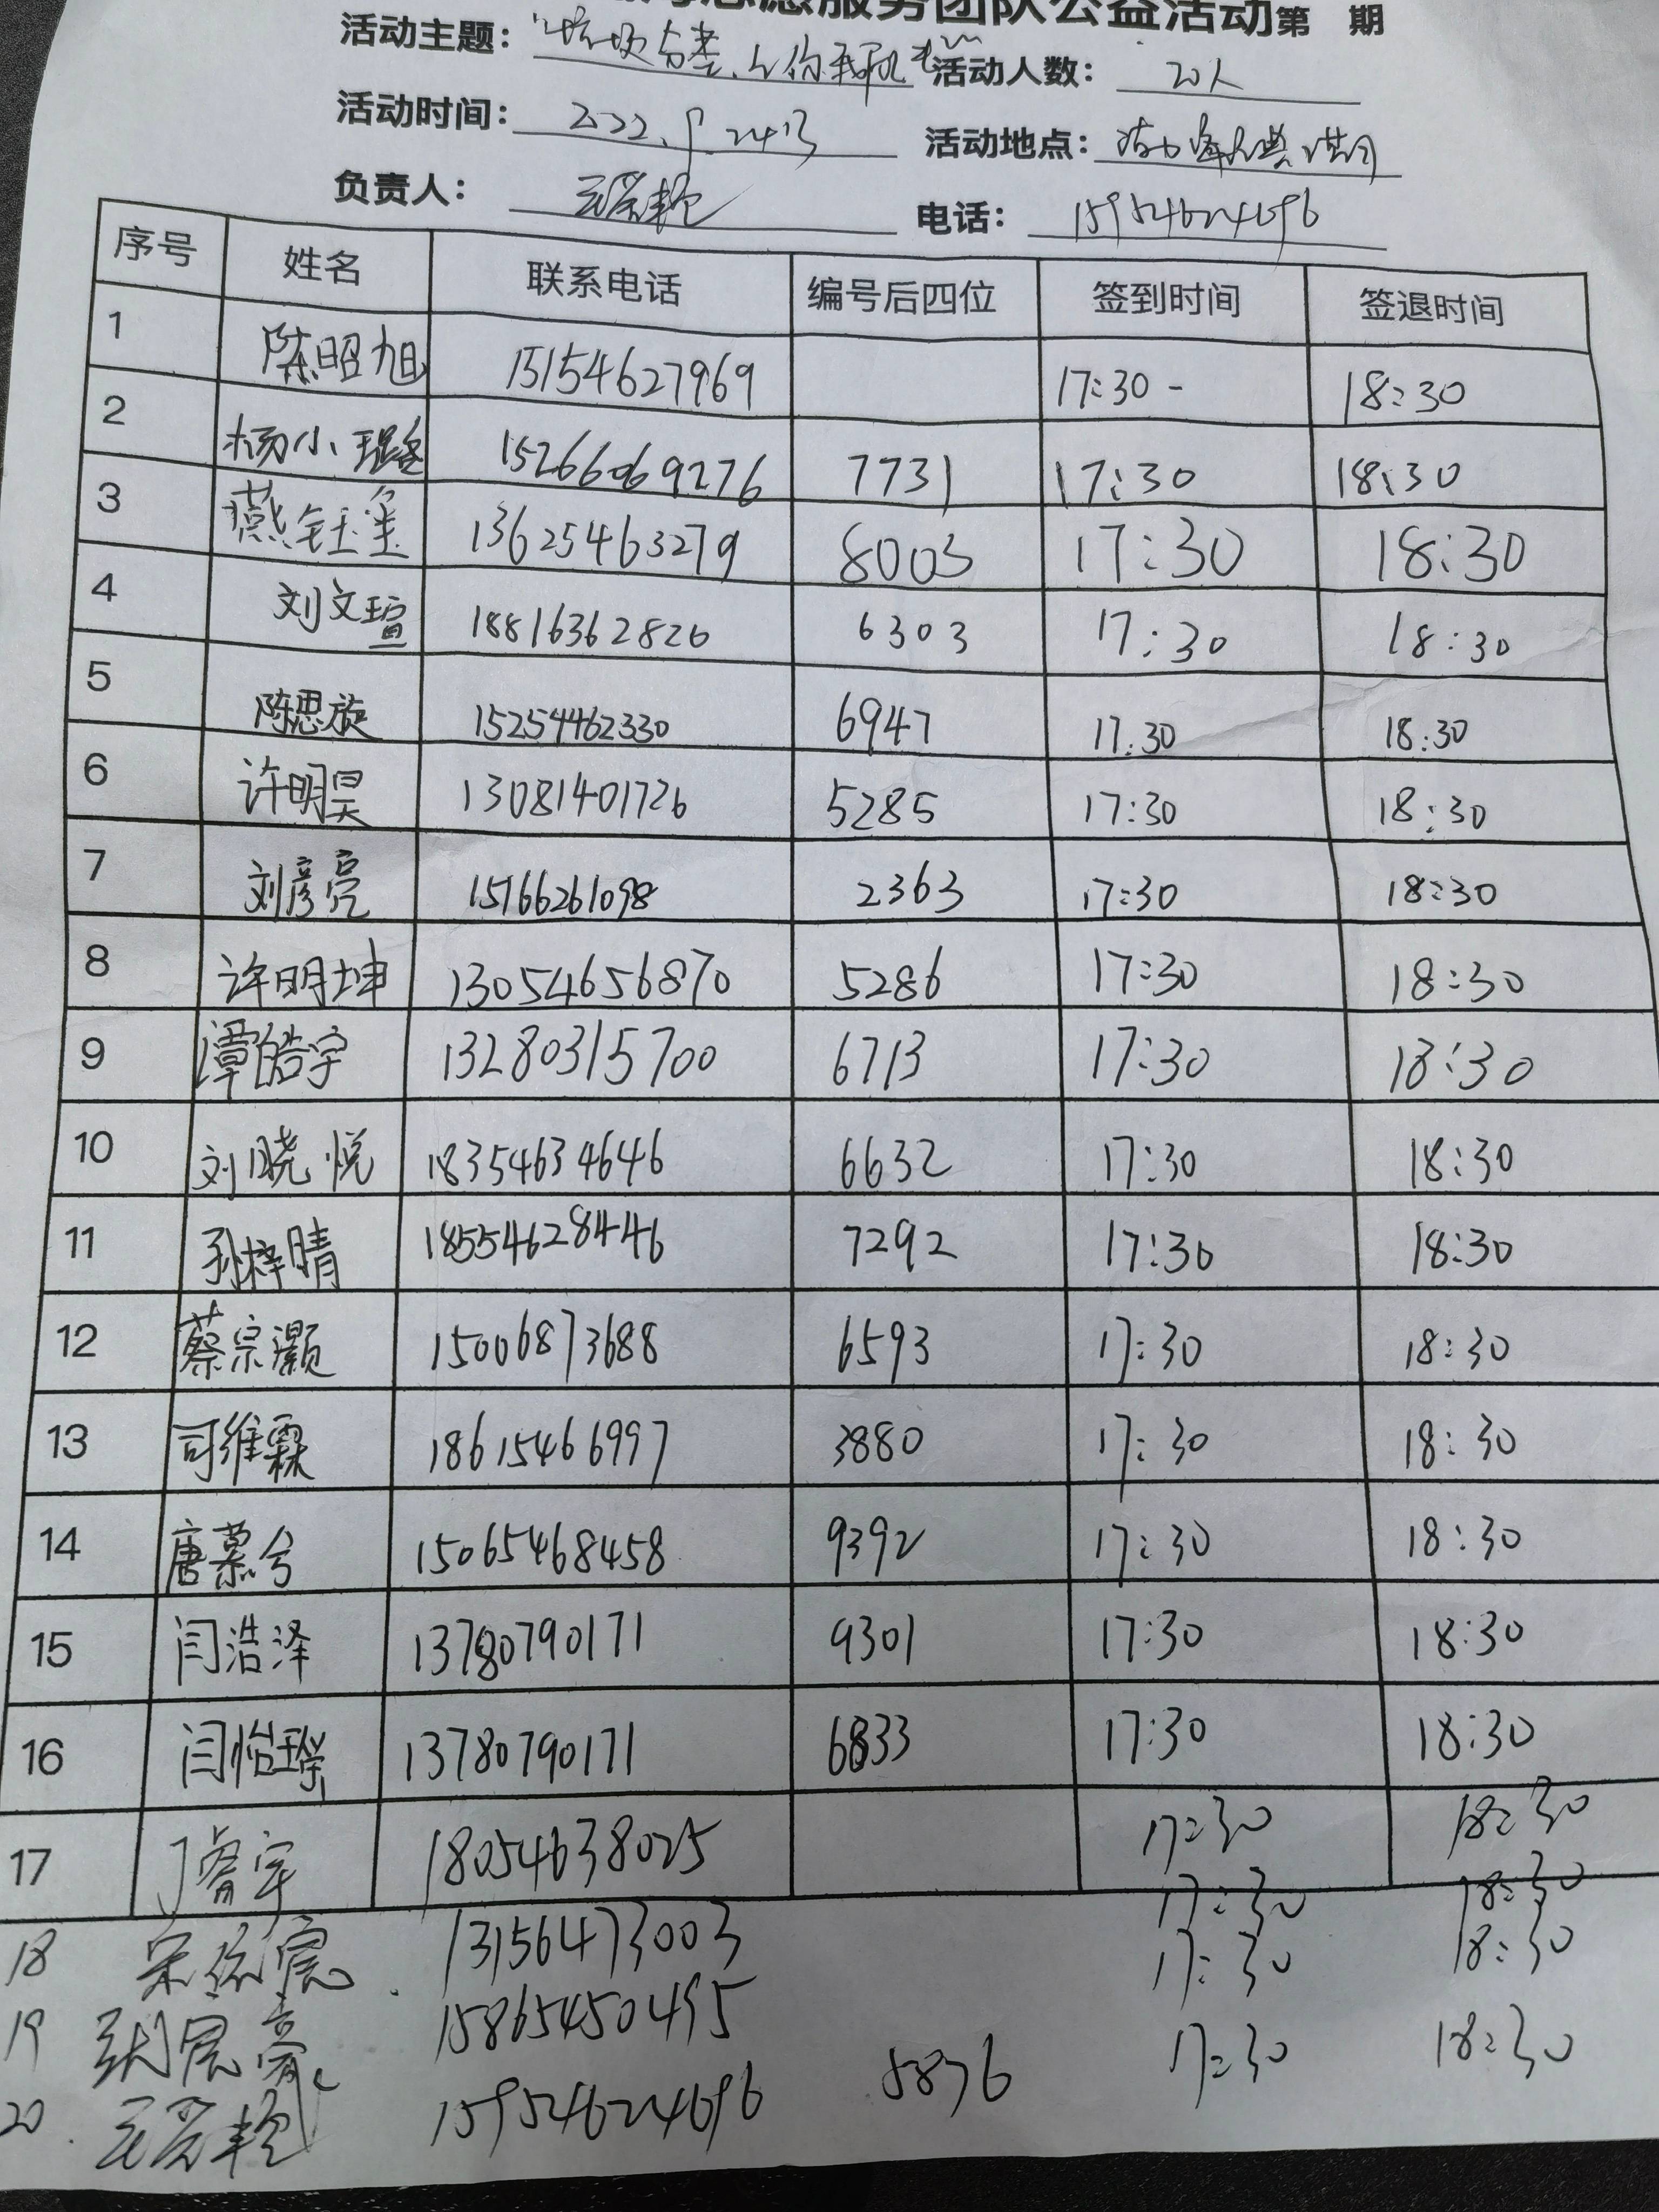 志愿服务团队公益活动第 期
活动主题： 垃圾分类、从你我 活动人数： 20人
活动时间： 2022.9.24日 活动地点：
负责人： 电话： 15954624696
序号 姓名 联系电话 编号后四位 签到时间 签退时间
1 陈昭旭 15154627969 17:30 - 18:30
2 杨小 15266069276 7731 17:30 18:30
3 燕钰玺 13625463279 8003 17:30 18:30
4 刘文瑄 18816362826 6303 17:30 18:30
5 陈思旋 15254462330 6947 17:30 18:30
6 许明昊 13081401726 5285 17:30 18:30
7 刘彦亮 15166261098 2363 17:30 18:30
8 许明坤 13054656870 5286 17:30 18:30
9 谭皓宇 13280315700 6713 17:30 18:30
10 刘晓悦 18354634646 6632 17:30 18:30
11 孙梓晴 18554628446 7292 17:30 18:30
12 蔡宗灏 15006873688 6593 17:30 18:30
13 司维霖 18615466997 3880 17:30 18:30
14 唐慕兮 15065468458 9392 17:30 18:30
15 闫浩泽 13780790171 9301 17:30 18:30
16 闫怡 13780790171 6833 17:30 18:30
17 丁睿宇 18054638025 17:30 18:30
18 宋 宸 13156473003 17:30 18:30
19 15865450495 17:30 18:30
20 15954624696 5876 17:30 18:30